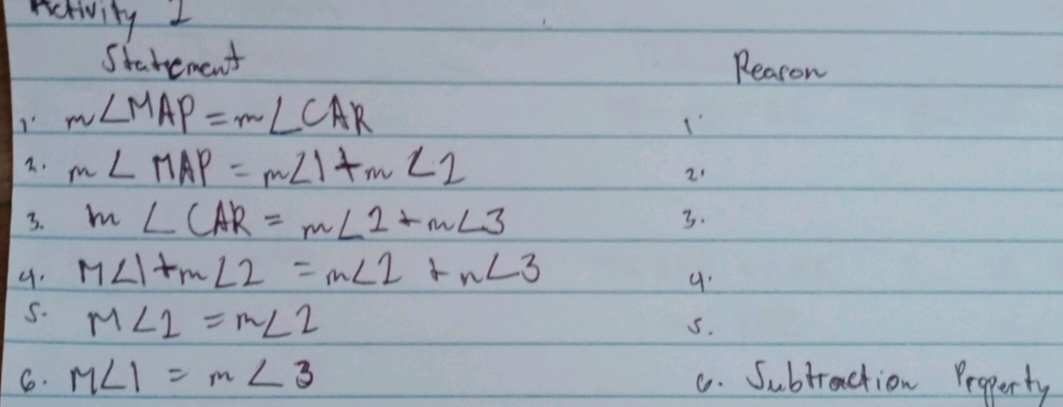 Activity 1
Statement Reason
1. m∠MAP = m∠CAR 1.
2. m∠MAP = m∠1 + m∠2 2.
3. m∠CAR = m∠2 + m∠3 3.
4. M∠1 + m∠2 = m∠2 + m∠3 4.
5. M∠2 = m∠2 5.
6. M∠1 = m∠3 6. Subtraction Property